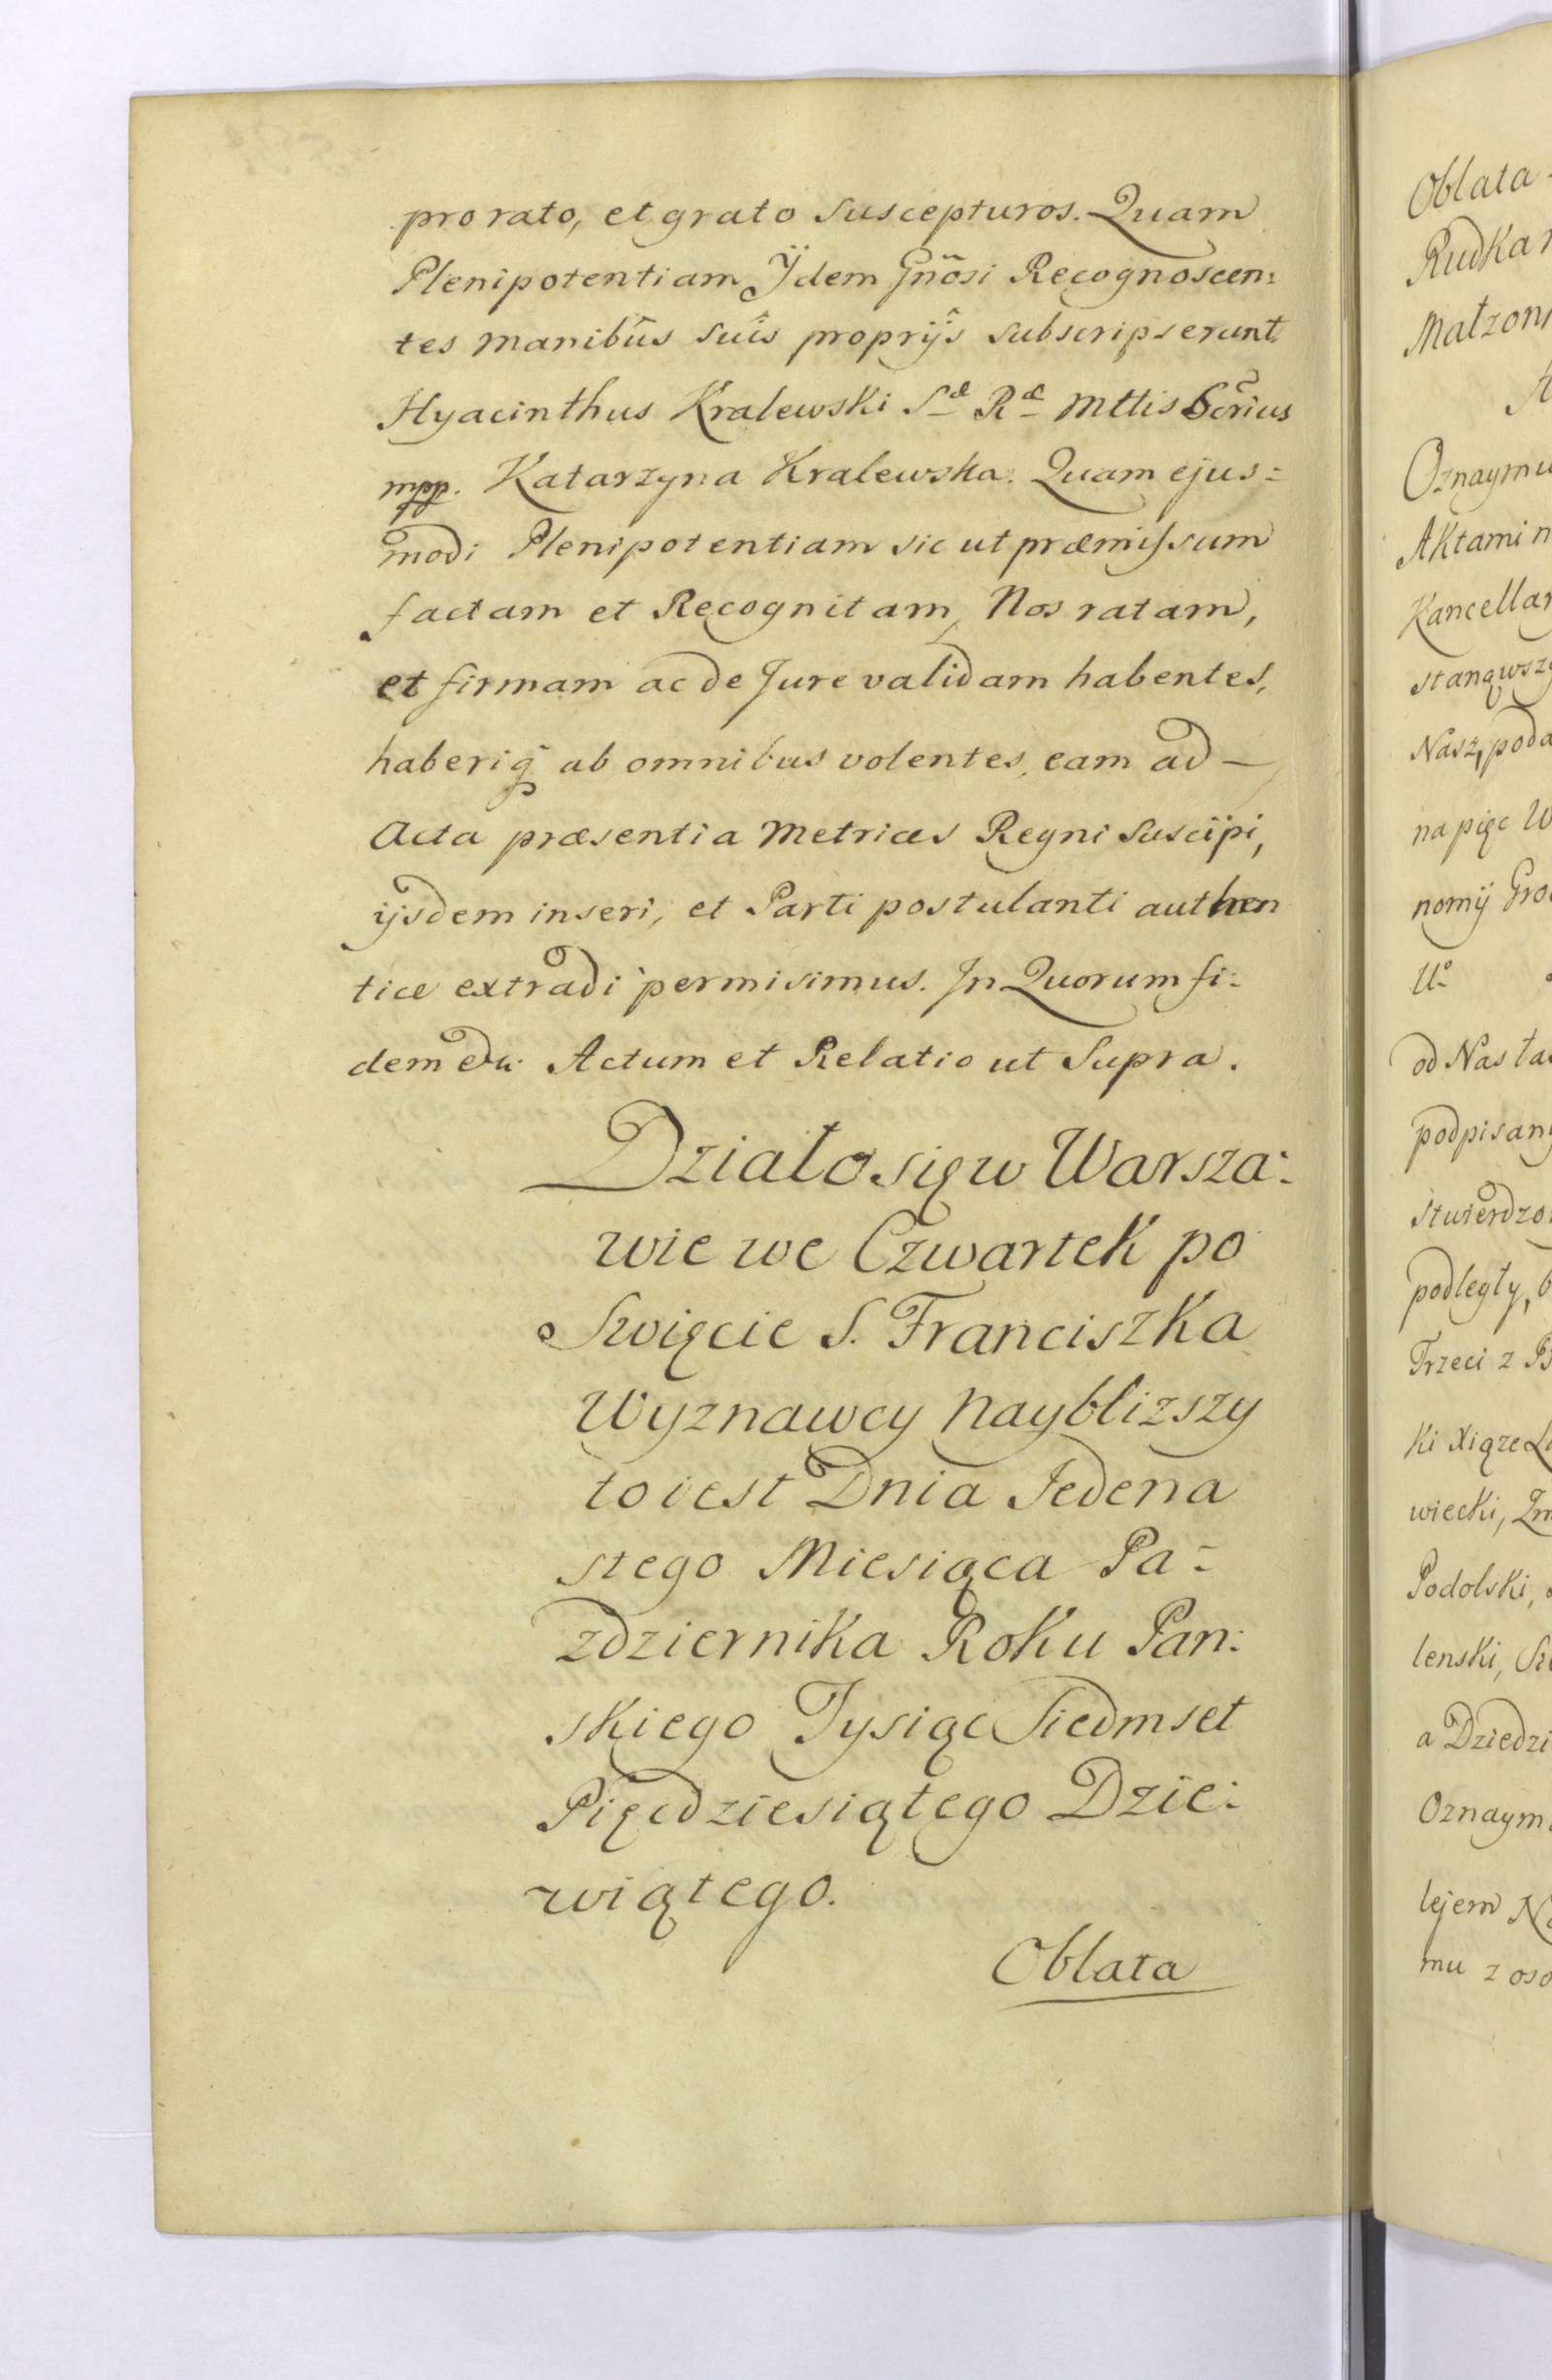 pro rato, et grato suscepturos. Quam
Plenipotentiam Ÿdem Gñosi Recognoscen:
tes manibûs suîs proprijs subscripserunt
Hyacinthus Kralewski S^æ R^æ Mttis Scrius
mpp. Katarzyna Kralewska. Quam ejus=
modi Plenipotentiam sic ut præmissum
factam et Recognitam, Nos ratam,
et firmam ac de Jure validam habentes,
haberiq̃ ab omnibus volentes, eam ad —
Acta præsentia Metrices Regni suscipi,
ijsdem inseri, et Parti postulanti authen
tice extradi permisimus. In Quorum fi:
dem etc: Actum et Relatio ut Supra.
Działo się w Warsza:
wie we Czwartek po
Swięcie S. Franciszka
Wyznawcy naybliższy
to iest Dnia Jedena
stego Miesiąca Pa=
zdziernika Roku Pan:
skiego Tysiąc Siedmset
Pięcdziesiątego Dzie:
wiątego.
Oblata
Oblata
Rudka
Małzon
Oznaymu
Aktami n
Kancellar
stanąwszy
Nasz, poda
na pięc W
nomij Gro
U^o
od Nas ła
podpisany
stwierdzo
podległy, b
Trzeci z B
ki Xiąze Li
wiecki, Zm
Podolski,
lenski, S
a Dziedzi
Oznaym
lejem N
mu z oso